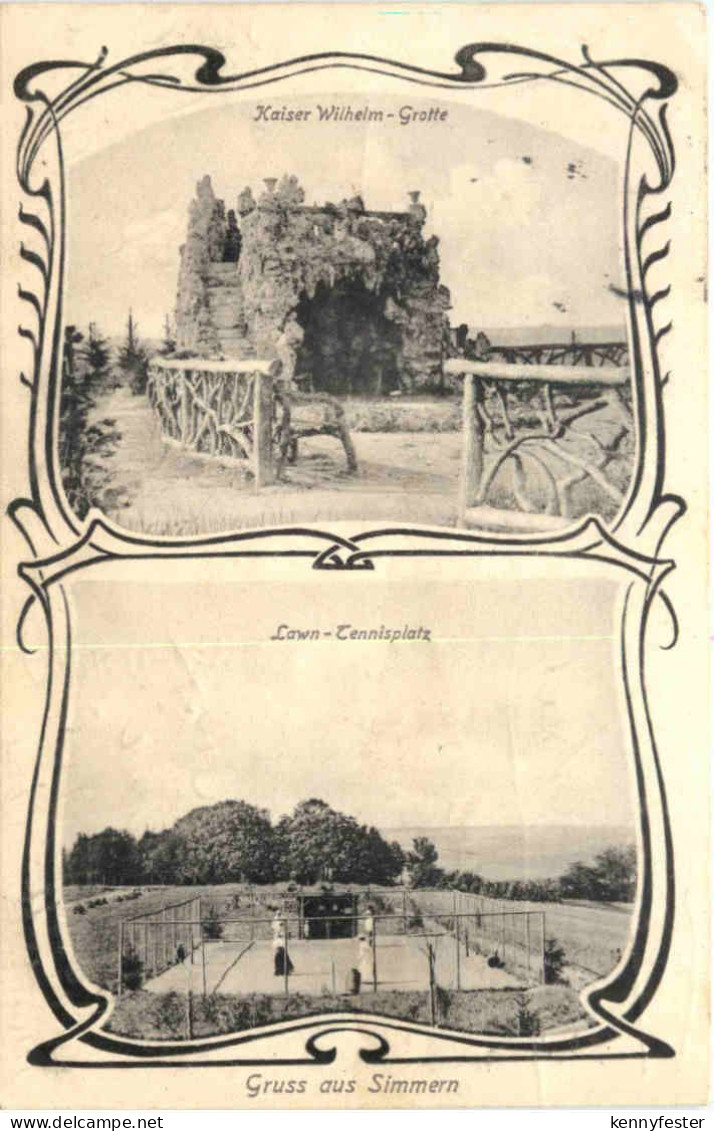 Kaiser Wilhelm-Grotte
Lawn-Tennisplatz
Gruss aus Simmern
kennyfester